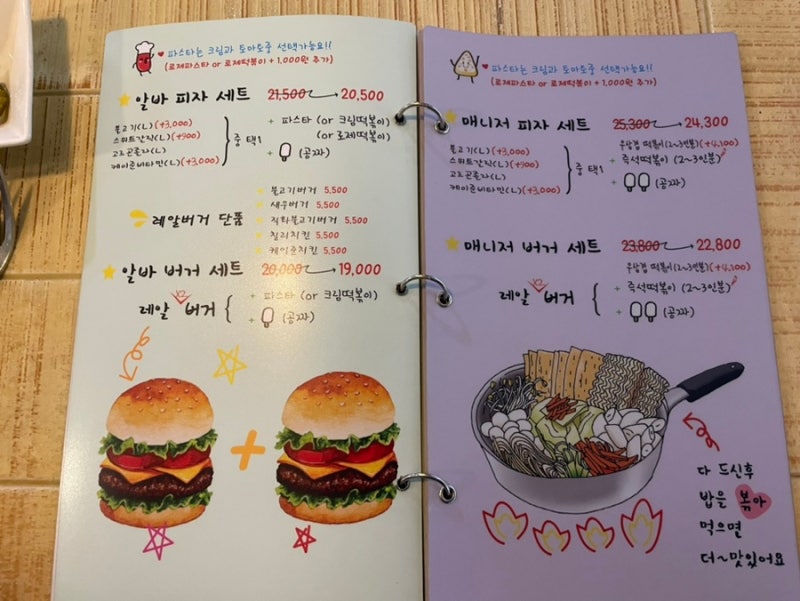 ♥ 파스타는 크림과 토마토중 선택가능요!!
(로제파스타 or 로제떡볶이 + 1,000원 추가)
알바 피자 세트 21,500 → 20,500
불고기(L) (+3,000)
스위트감자(L) (+900)
고르곤졸라(L)
케이준쉬림프(L) (+3,000)
중 택1
+ 파스타 (or 크림떡볶이)
(or 로제떡볶이)
+ (공짜)
레알버거 단품
불고기버거 5,500
새우버거 5,500
직화불고기버거 5,500
칠리치킨 5,500
케이준치킨 5,500
알바 버거 세트 20,000 → 19,000
레알 버거 X2
+ 파스타 (or 크림떡볶이)
+ (공짜)
+
♥ 파스타는 크림과 토마토중 선택가능요!!
(로제파스타 or 로제떡볶이 + 1,000원 추가)
매니저 피자 세트 25,300 → 24,300
불고기(L) (+3,000)
스위트감자(L) (+900)
고르곤졸라(L)
케이준쉬림프(L) (+3,000)
중 택1
떡볶이 (2~3인분) (+4,100)
+ 즉석떡볶이 (2~3인분)
+ (공짜)
매니저 버거 세트 23,800 → 22,800
레알 버거 X2
떡볶이 (2~3인분) (+4,100)
+ 즉석떡볶이 (2~3인분)
+ (공짜)
다 드신후
밥을 볶아
먹으면
더~맛있어요